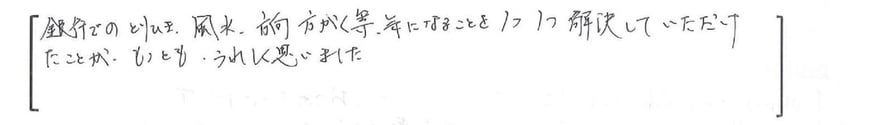 銀行でのとりひき、風水、方向 方がく等、気になることを1つ1つ解決していただけ
たことが、もっとも、うれしく思いました